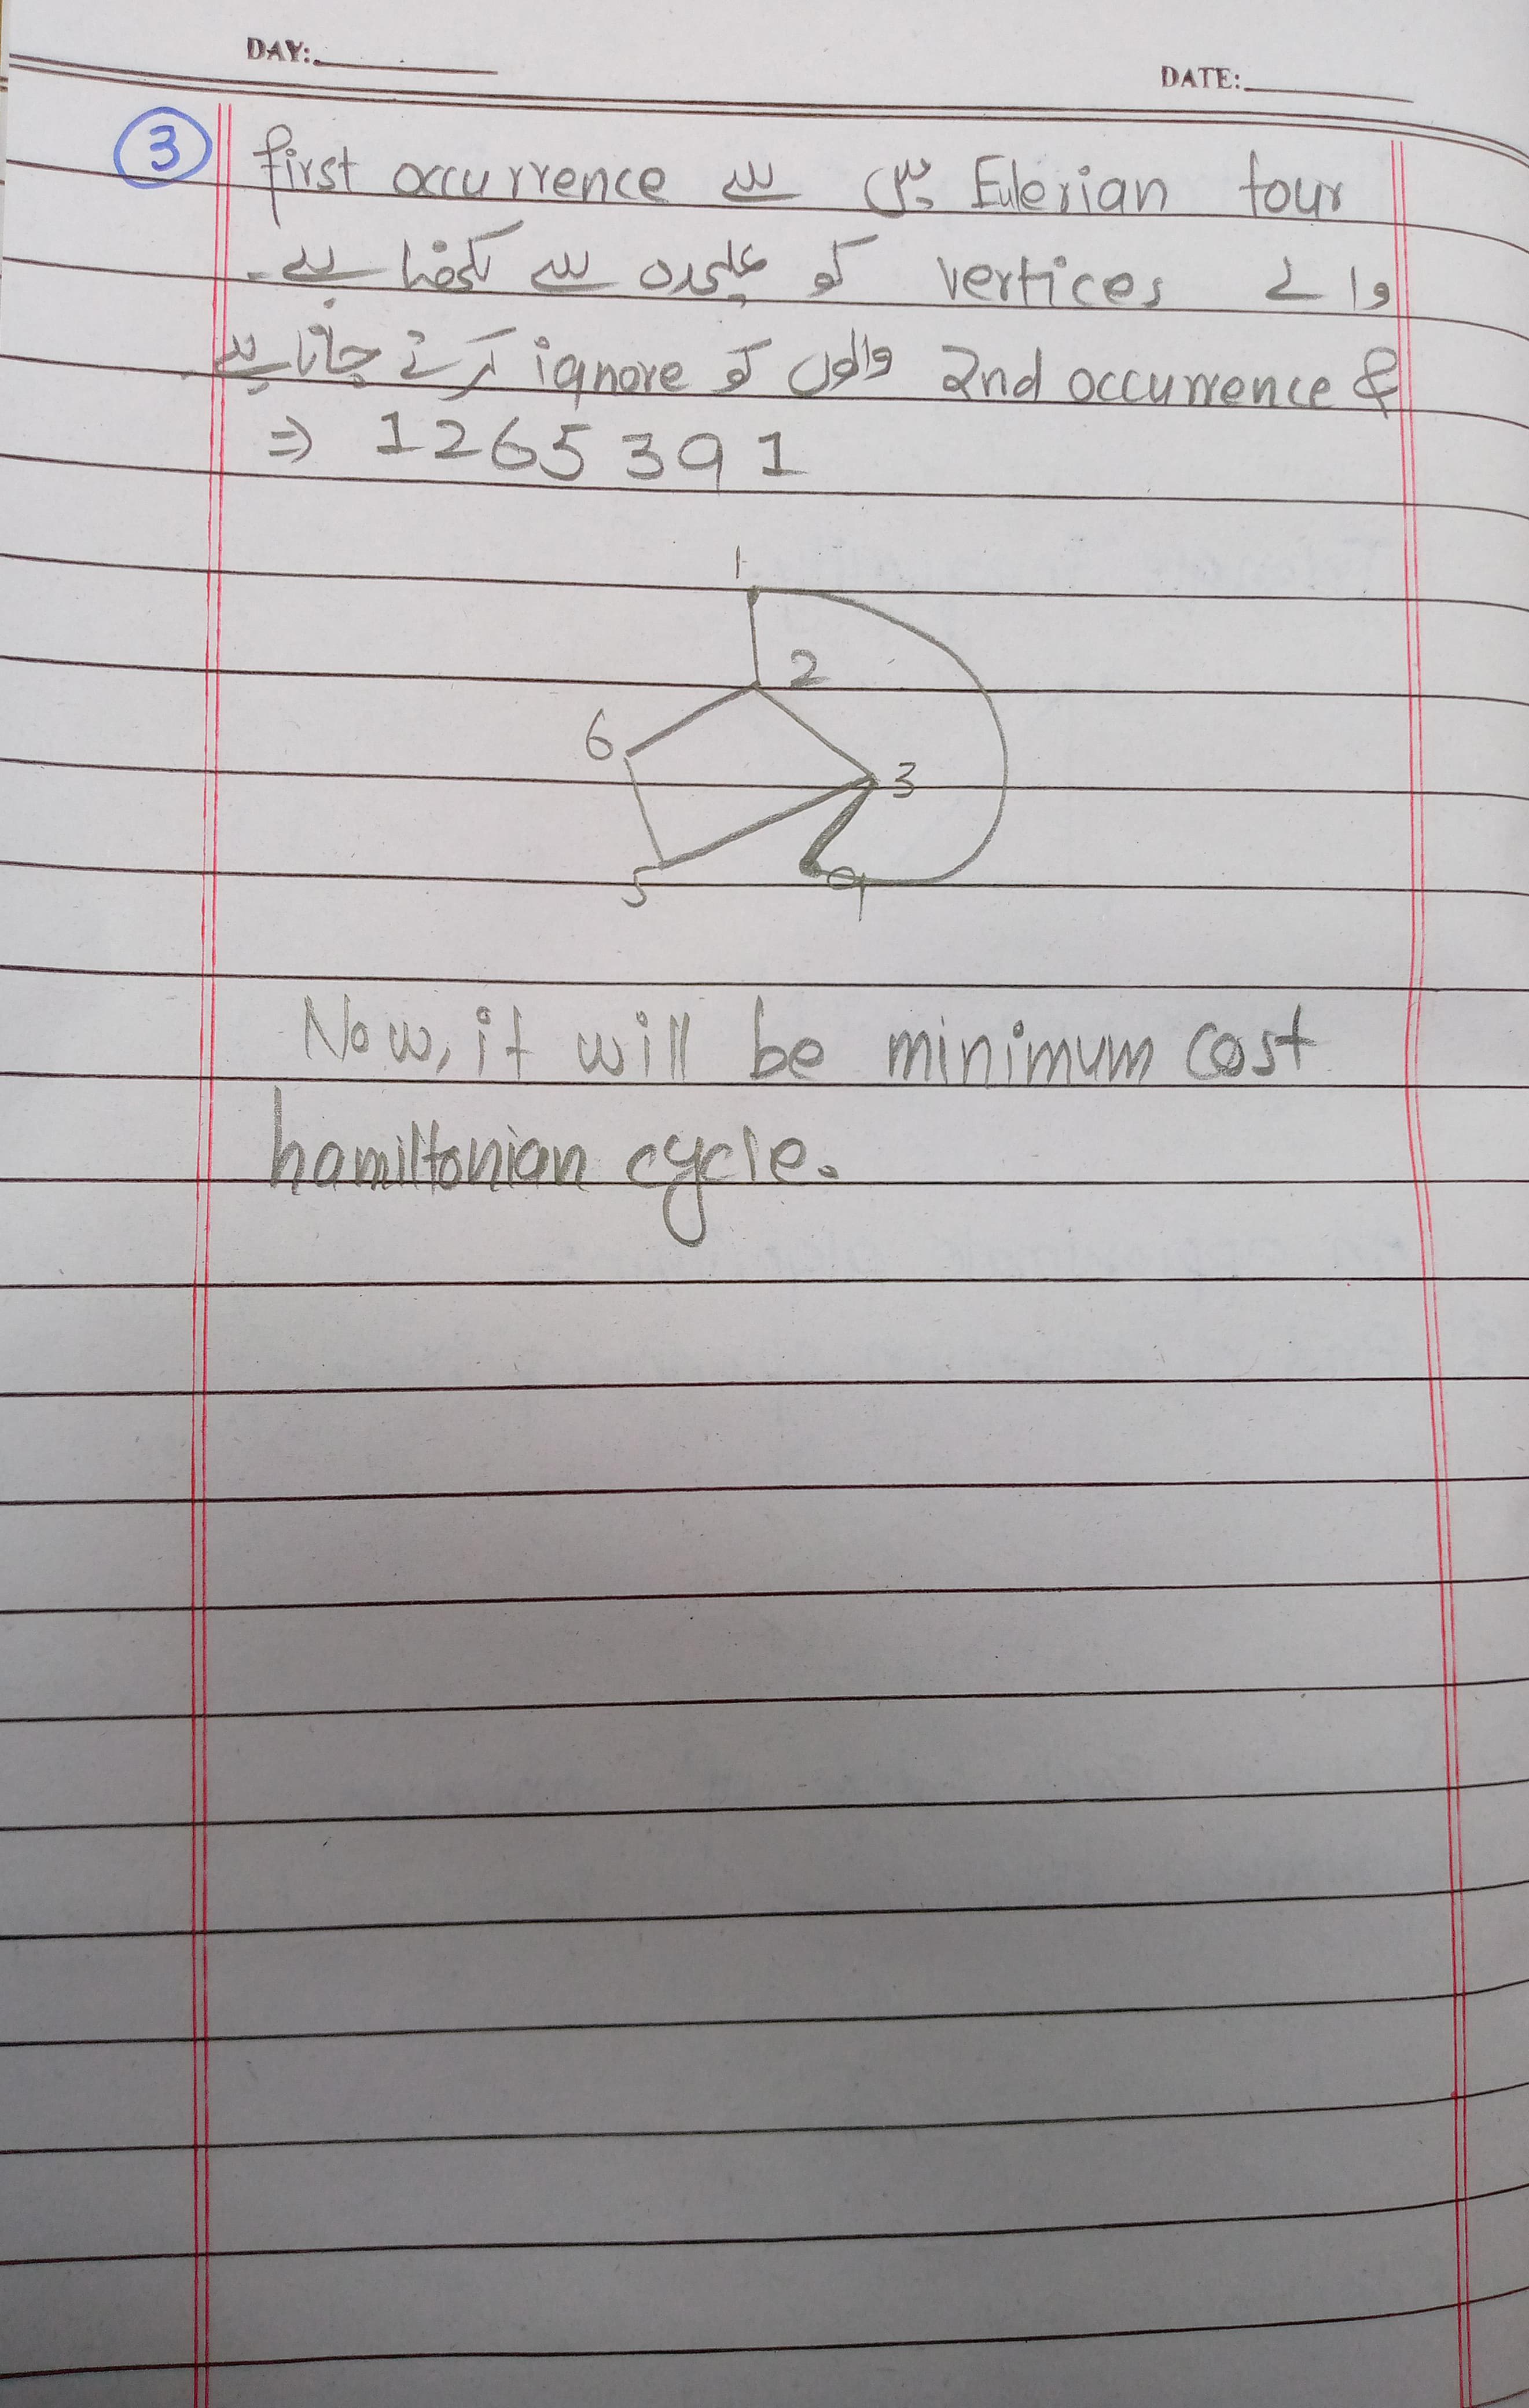 DAY:
DATE:
3
Eulerian tour میں سے first occurrence
والے vertices کو علیحدہ سے لکھنا ہے۔
& 2nd occurrence والوں کو ignore کرتے جانا ہے۔
⇒ 1 2 6 5 3 9 1
1
2
6
3
5
9
Now, it will be minimum cost
hamiltonian cycle.